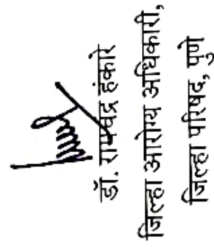 डॉ. रामचंद्र हंकारे
जिल्हा आरोग्य अधिकारी,
जिल्हा परिषद, पुणे